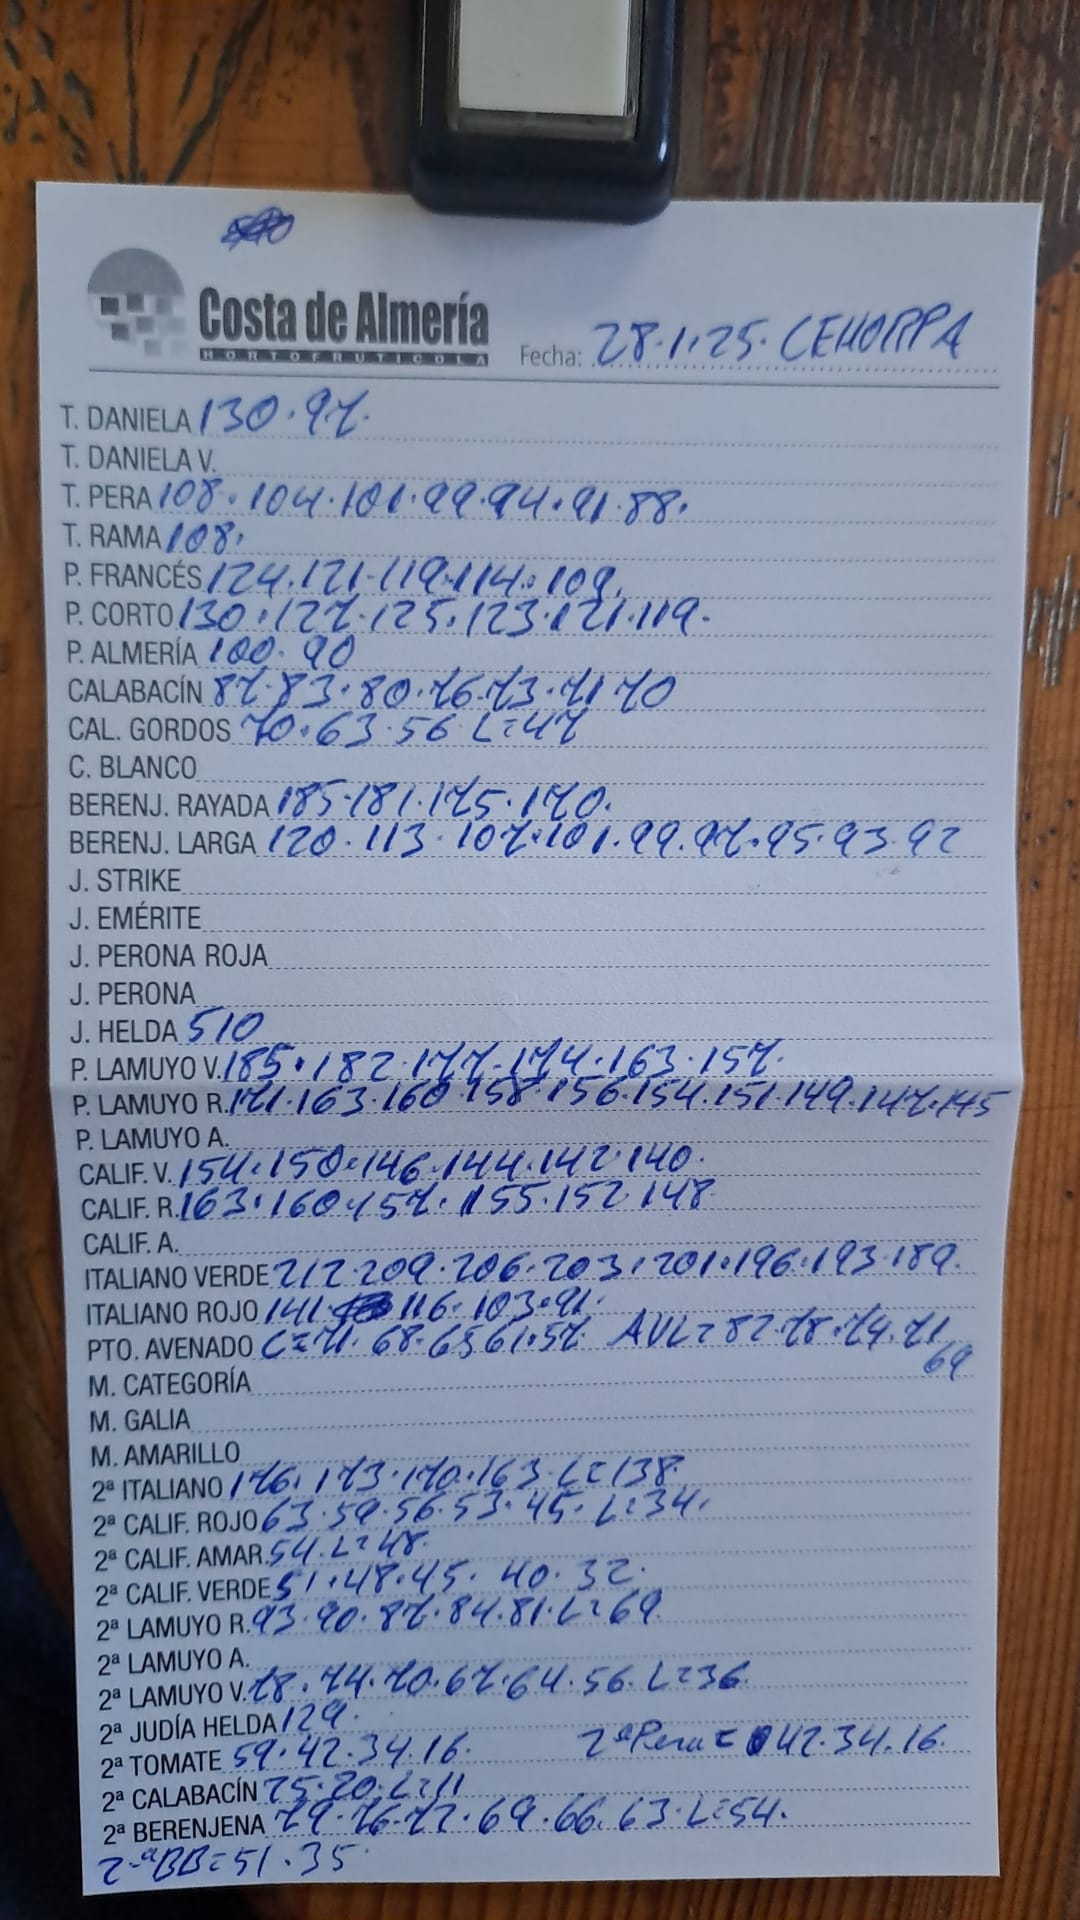 Costa de Almería
HORTOFRUTICOLA
Fecha: 28.1.25. CEHORPA
T. DANIELA 130.97.
T. DANIELA V.
T. PERA 108.104.101.99.94.91.88.
T. RAMA 108.
P. FRANCÉS 124.121.119.114.109.
P. CORTO 130.127.125.123.121.119.
P. ALMERÍA 100.90
CALABACÍN 87.83.80.76.73.71 70
CAL. GORDOS 70.63.56 L=47
C. BLANCO
BERENJ. RAYADA 185.181.175.170.
BERENJ. LARGA 120.113.107.101.99.97.95.93.92
J. STRIKE
J. EMÉRITE
J. PERONA ROJA
J. PERONA
J. HELDA 510
P. LAMUYO V. 185.182.177.174.163.157.
P. LAMUYO R. 171.163.160.158.156.154.151.149.147.145
P. LAMUYO A.
CALIF. V. 154.150.146.144.142.140.
CALIF. R. 163.160.157.155.152.148
CALIF. A.
ITALIANO VERDE 212.209.206.203.201.196.193.189.
ITALIANO ROJO 141. 116.103.91.
PTO. AVENADO C=71.68.65 61.57. AVL=82.78.74.71
69
M. CATEGORÍA
M. GALIA
M. AMARILLO
2ª ITALIANO 176.173.170.163.L=138.
2ª CALIF. ROJO 63.59.56.53.45.L=34.
2ª CALIF. AMAR. 54.L=48.
2ª CALIF. VERDE 51.48.45.40.32.
2ª LAMUYO R. 93.90.87.84.81.L=69.
2ª LAMUYO A.
2ª LAMUYO V. 78.74.70.67.64.56.L=36.
2ª JUDÍA HELDA 129.
2ª TOMATE 59.42.34.16. 2ª Pera= 42.34.16.
2ª CALABACÍN 25.20.L=11
2ª BERENJENA 79.76.72.69.66.63.L=54.
2-ªBB=51.35